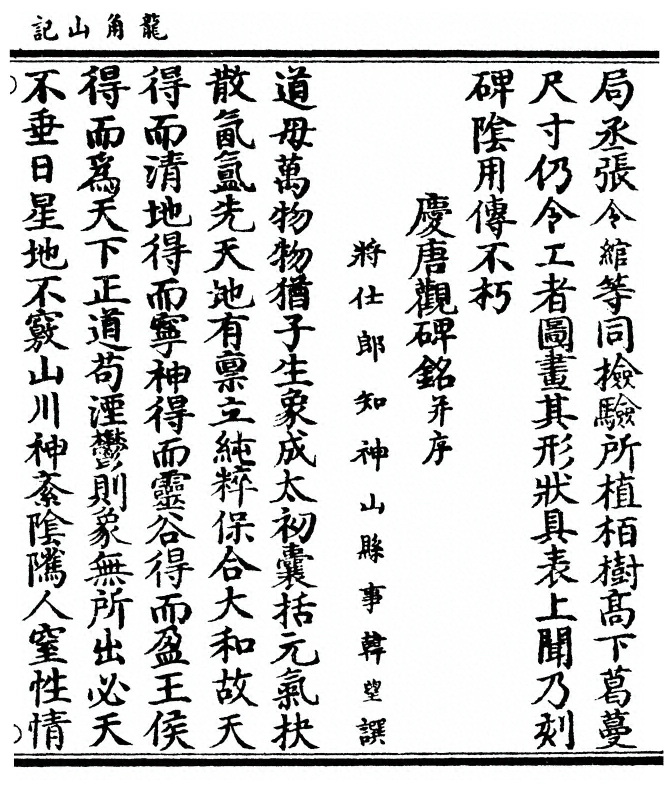 龍角山記
局丞張令綰等同撿驗所植栢樹高下葛蔓
尺寸仍令工者圖畫其形狀具表上聞乃刻
碑陰用傳不朽
慶唐觀碑銘并序
將仕郎知神山縣事韓望撰
道母萬物物猶子生象成太初囊括元氣抉
散氤氳先天地有稟立純粹保合大和故天
得而清地得而寧神得而靈谷得而盈王侯
得而為天下正道苟湮鬱則象無所出必天
不垂日星地不竅山川神紊陰隲人窒性情